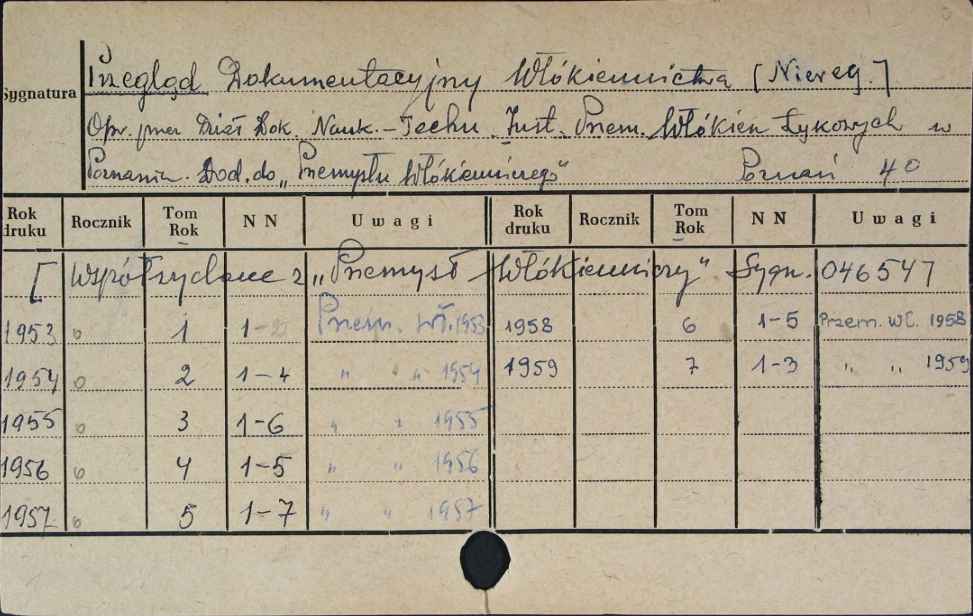 Sygnatura
Przegląd Dokumentacyjny Włókiennictwa [Niereg.]
Opr. przez Dział Dok. Nauk.-Techn. Inst. Przem. Włókien Łykowych w
Poznaniu. Dod. do „Przemysłu Włókienniczego" Poznań 4°
Rok druku Rocznik Tom Rok N N Uwagi Rok druku Rocznik Tom Rok N N Uwagi
[Współwydane z „Przemysł Włókienniczy" Sygn. 046547
1953 o 1 1- Przem. Wł. 1953 1958 6 1-5 Przem. Wł. 1958
1954 o 2 1-4 " " " 1954 1959 7 1-3 " " 1959
1955 o 3 1-6 " " 1955
1956 o 4 1-5 " " 1956
1957 o 5 1-7 " " 1957